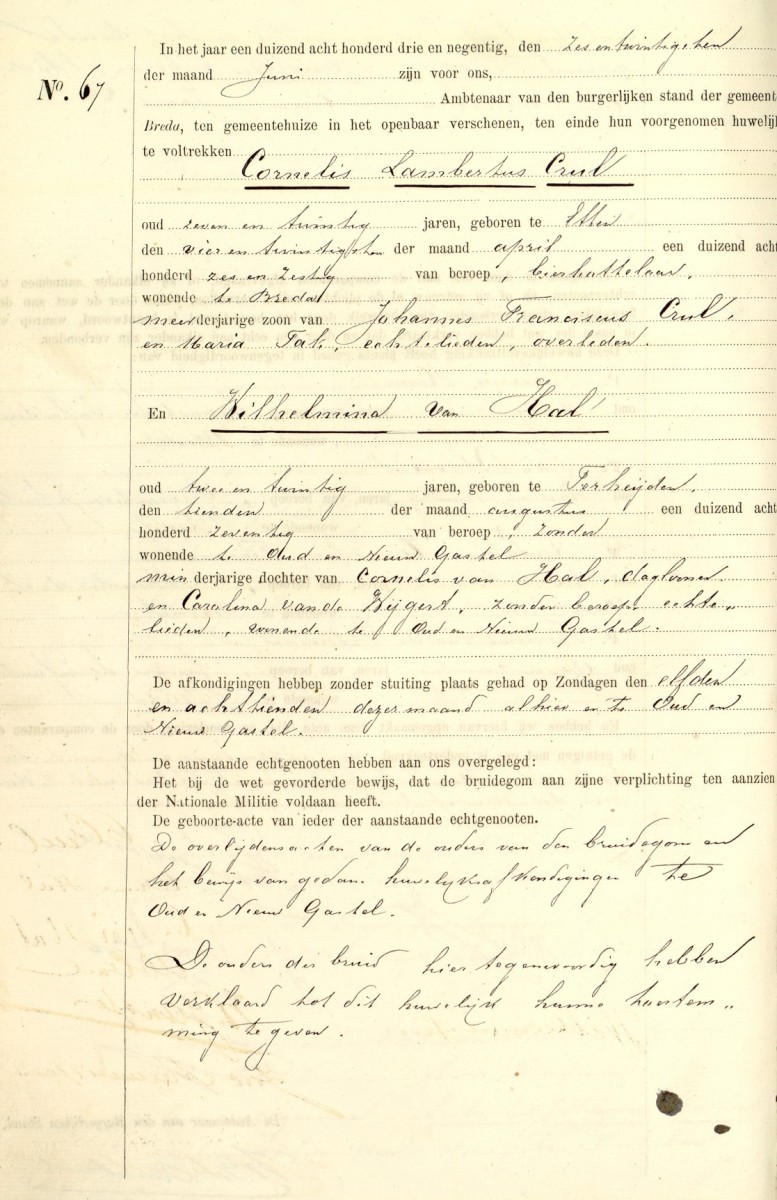 In het jaar een duizend acht honderd drie en negentig, den zes en twintigsten
der maand Juni zijn voor ons,
No. 67
Ambtenaar van den burgerlijken stand der gemeent
Breda, ten gemeentehuize in het openbaar verschenen, ten einde hun voorgenomen huwelij
te voltrekken
Cornelis Lambertus Crul
oud zeven en twintig jaren, geboren te Etten
den vier en twintigsten der maand april een duizend acht
honderd zes en zestig van beroep, bierbottelaar,
wonende te Breda
meerderjarige zoon van Johannes Franciscus Crul.
en Maria Tak, echtelieden, overleden.
En Wilhelmina van Hal
oud twee en twintig jaren, geboren te Terheijden,
den tienden der maand augustus een duizend acht
honderd zeventig van beroep, zonder
wonende te Oud en Nieuw Gastel
minderjarige dochter van Cornelis van Hal, dagloner
en Carolina van de Wijgert, zonder beroep, echte„
lieden, wonende te Oud en Nieuw Gastel.
De afkondigingen hebben zonder stuiting plaats gehad op Zondagen den elfden
en achttienden dezer maand alhier en te Oud en
Nieuw Gastel.
De aanstaande echtgenooten hebben aan ons overgelegd:
Het bij de wet gevorderde bewijs, dat de bruidegom aan zijne verplichting ten aanzien
der Nationale Militie voldaan heeft.
De geboorte-acte van ieder der aanstaande echtgenooten.
De overlijdensacten van de ouders van den bruidegom en
het bewijs van gedane huwelijksafkondigingen te
Oud en Nieuw Gastel.
De ouders der bruid hier tegenwoordig hebben
verklaard tot dit huwelijk hunne toestem„
ming te geven.